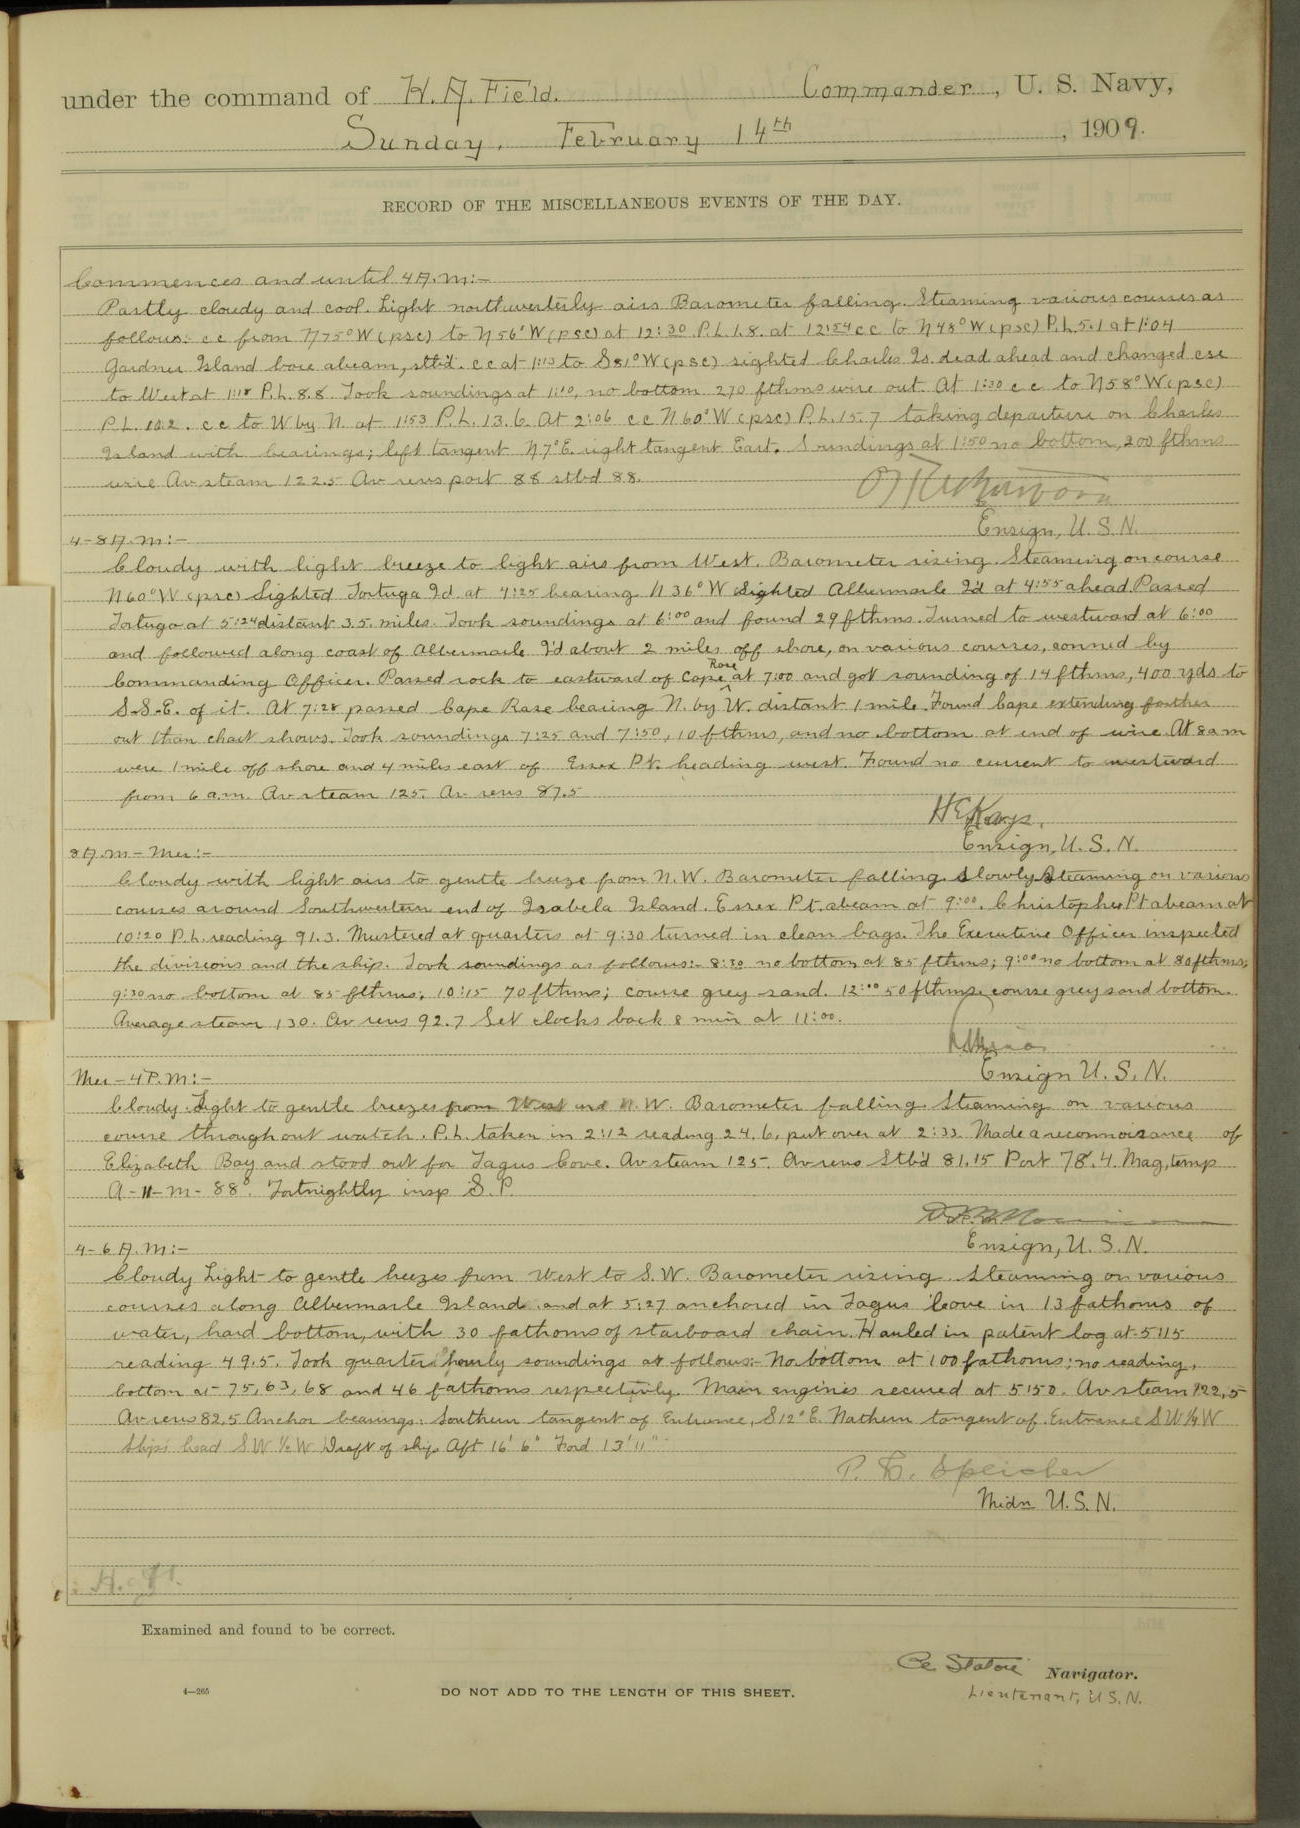 under the command of H. A. Field. Commander, U. S. Navy,
Sunday, February 14th, 1909.
RECORD OF THE MISCELLANEOUS EVENTS OF THE DAY.
Commences and until 4 A.M:-
Partly cloudy and cool. Light northwesterly airs Barometer falling. Steaming various courses as
follows: cc from N75°W (psc) to N56°W (psc) at 12:30 P.L. 1.8. at 12:54 cc to N48°W (psc) P.L. 5.1 at 1:04
Gardner Island bore abeam, stb'd. cc at 1:13 to S81°W (psc) sighted Charles Is. dead ahead and changed cse
to West at 1:18 P.L. 8.8. Took soundings at 1:10, no bottom 270 fthms wire out. At 1:30 c c to N58°W (psc)
P.L. 10.2. cc to W by N. at 1:53 P.L. 13.6. At 2:06 cc N60°W (psc) P.L. 15.7 taking departure on Charles
Island with bearings; left tangent N.7°E. right tangent East. Soundings at 1:50 no bottom, 200 fthms
wire Av steam 122.5 Av revs port 88 stbd 88.
Ensign, U.S.N.
4-8 A.M:-
Cloudy with light breeze to light airs from West. Barometer rising. Steaming on course
N60°W (psc) Sighted Tortuga Id. at 4:25 bearing N36°W Sighted Albermarle I'd at 4:55 ahead. Passed
Tortuga at 5:24 distant 3.5. miles. Took soundings at 6:00 and found 29 fthms. Turned to westward at 6:00
and followed along coast of Albermarle I'd about 2 miles off shore, on various courses, conned by
Commanding Officer. Passed rock to eastward of Cape Rose at 7:00 and got sounding of 14 fthms, 400 yds to
S.S.E. of it. At 7:28 passed Cape Rose bearing N. by W. distant 1 mile. Found Cape extending farther
out than chart shows. Took soundings 7:25 and 7:50, 10 fthms, and no bottom at end of wire. At 8 am
were 1 mile off shore and 4 miles east of Essex Pt. heading west. Found no current to westward
from 6 a.m. Av steam 125. Av revs 87.5
H E Kays.
Ensign, U.S.N.
8 A.M - Mer:-
Cloudy with light airs to gentle breeze from N.W. Barometer falling slowly Steaming on various
courses around Southwestern end of Isabela Island. Essex Pt. abeam at 9:00. Christopher Pt abeam at
10:20 P.L. reading 91.3. Mustered at quarters at 9:30 turned in clean bags. The Executive Officer inspected
the divisions and the ship. Took soundings as follows:- 8:30 no bottom at 85 fthms; 9:00 no bottom at 80 fthms;
9:30 no bottom at 85 fthms; 10:15 70 fthms; course grey sand. 12:00 50 fthms, course grey sand bottom.
Average steam 130. Av revs 92.7 Set clocks back 8 min at 11:00.
Ensign U.S.N.
Mer - 4 P.M:-
Cloudy. Light to gentle breezes from West and N.W. Barometer falling. Steaming on various
course throughout watch. P.L. taken in 2:12 reading 24.6, put over at 2:33. Made a reconnoisance of
Elizabeth Bay and stood out for Tagus Cove. Av steam 125. Av revs Stb'd 81.15 Port 78.4. Mag, temp
A-11-M- 88°. Fortnightly insp S.P.
Ensign, U.S.N.
4-6 A.M:-
Cloudy Light to gentle breezes from West to S.W. Barometer rising. Steaming on various
courses along Albermarle Island and at 5:27 anchored in Tagus Cove in 13 fathoms of
water, hard bottom, with 30 fathoms of starboard chain. Hauled in patent log at 5:15
reading 49.5. Took quarter hourly soundings as follows:- No bottom at 100 fathoms; no reading,
bottom at 75, 63, 68 and 46 fathoms respectively. Main engines secured at 5:50. Av steam 122.5
Av revs 82.5 Anchor bearings: Southern tangent of Entrance, S12°E. Nathern tangent of Entrance SW ¼ W
Ships head SW ½ W Draft of ship Aft 16' 6" Ford 13' 11"
P. E. Speicher
Midn U.S.N.
Examined and found to be correct.
Navigator.
Lieutenant, U.S.N.
4—265
DO NOT ADD TO THE LENGTH OF THIS SHEET.